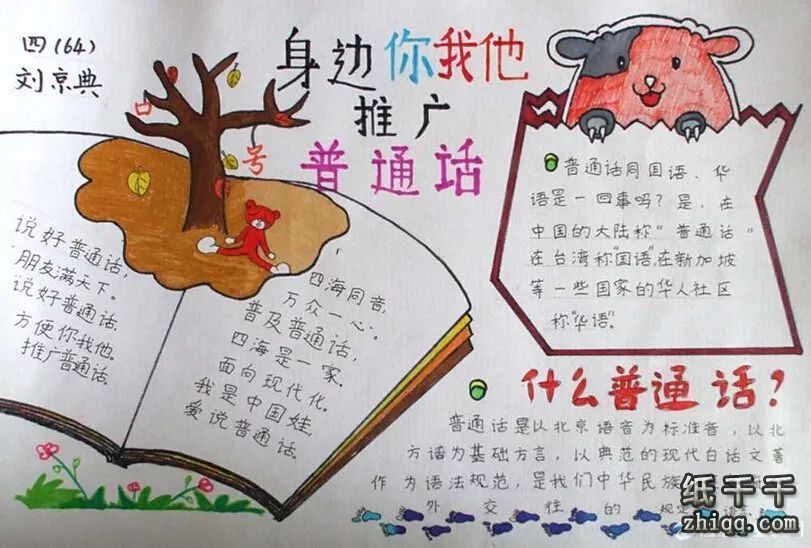 四(64)
刘京典
身边你我他
推广
普通话
口
号
说好普通话,
朋友满天下。
说好普通话
方便你我他。
推广普通话
四海同音,
万众一心。
普及普通话,
四海是一家.
面向现代化。
我是中国娃,
爱说普通话。
普通话同国语、华
语是一回事吗?是,在
中国的大陆称“普通话”
在台湾称“国语”,在新加坡
等一些国家的华人社区
称“华语”。
什么普通话?
普通话是以北京语音为标准音,以北
方话为基础方言,以典范的现代白话文著
作为语法规范,是我们中华民族
外交性的规定语言
纸千千
zhiqq.com